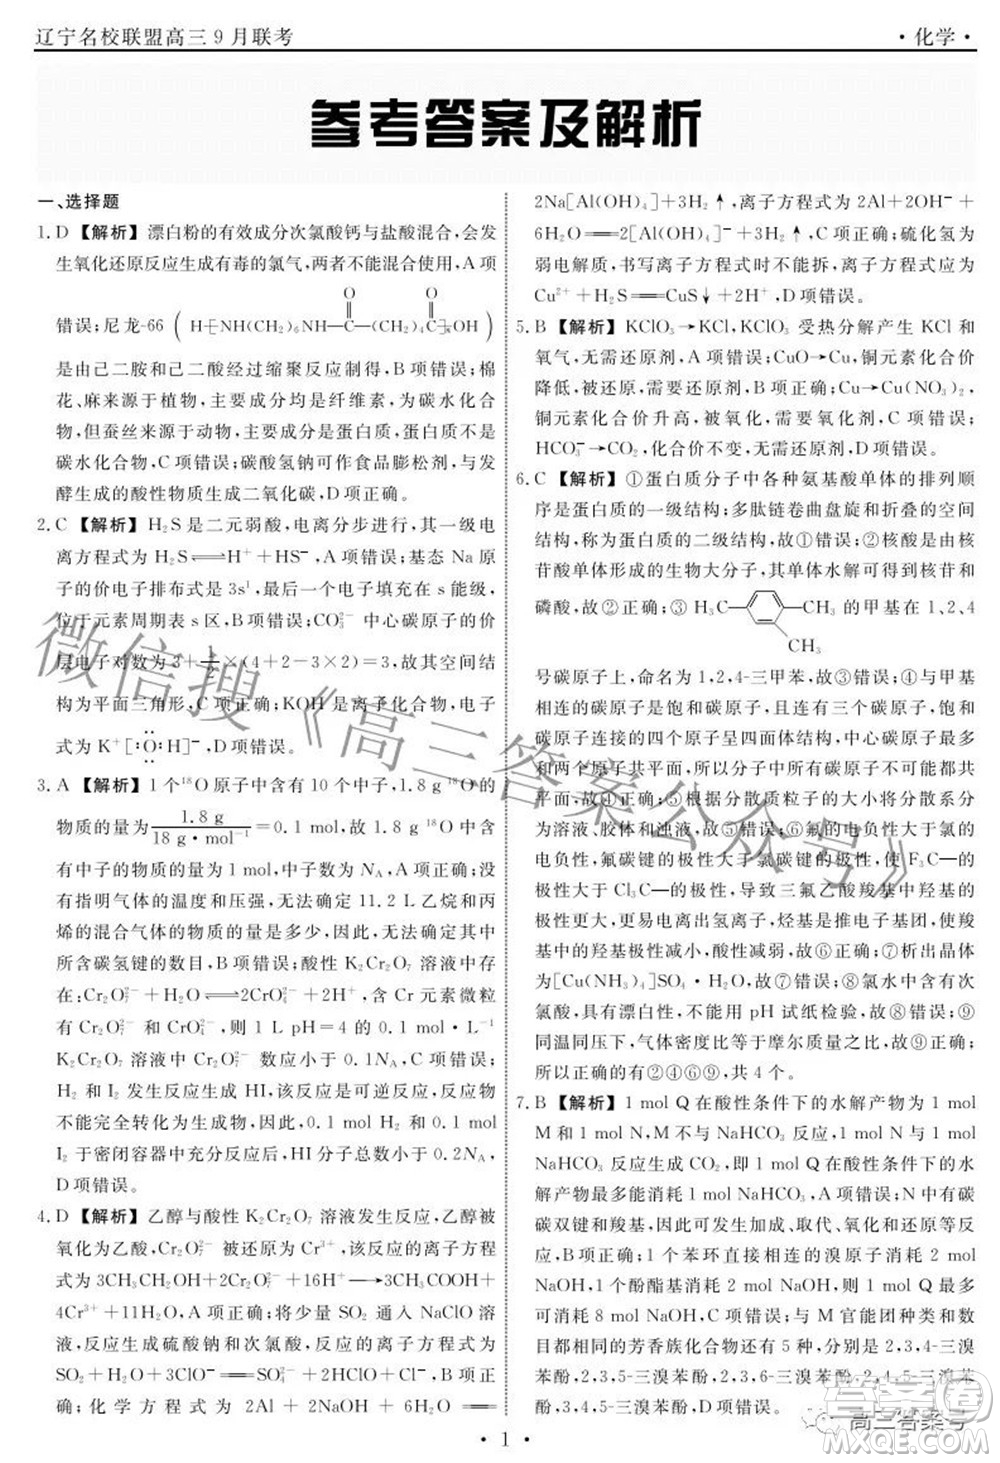 辽宁名校联盟高三9月联考
·化学·
参考答案及解析
一、选择题
1.D 【解析】漂白粉的有效成分次氯酸钙与盐酸混合,会发
生氧化还原反应生成有毒的氯气,两者不能混合使用,A项
错误;尼龙-66 ( H⁅NH(CH₂)₆NH—C(=O)—(CH₂)₄C(=O)⁆ₓOH )
是由己二胺和己二酸通过缩聚反应制成,B项错误;棉
花、麻来源于植物,主要成分是纤维素,为碳水化合
物,但蚕丝来源于动物,主要成分是蛋白质,蛋白质不是
碳水化合物,C项错误;碳酸氢钠可作食品膨松剂,与发
酵生成的酸性物质生成二氧化碳,D项正确。
2.C 【解析】H₂S是二元弱酸,电离分步进行,其一级电
离方程式为H₂S⇌H⁺+HS⁻,A项错误;基态Na原
子的价电子排布式是3s¹,最后一个电子填充在s能级,
位于元素周期表s区,B项错误;CO₃²⁻中心碳原子的价
层电子对数为3+1/2×(4+2-3×2)=3,故其空间结
构为平面三角形,C项正确;KOH是离子化合物,电子
式为K⁺[:Ö:H]⁻,D项错误。
3.A 【解析】1个¹⁸O原子中含有10个中子,1.8 g ¹⁸O的
物质的量为1.8 g/18 g·mol⁻¹=0.1 mol,故1.8 g ¹⁸O中含
有中子的物质的量为1 mol,中子数为Nₐ,A项正确;没
有指明气体的温度和压强,无法确定11.2 L乙烷和丙
烯的混合气体的物质的量是多少,因此,无法确定混合气体中含
有碳氢键的数目,B项错误;酸性K₂Cr₂O₇溶液中存
在:Cr₂O₇²⁻+H₂O⇌2CrO₄²⁻+2H⁺,含Cr元素微粒
有Cr₂O₇²⁻和CrO₄²⁻,则1 L pH=4的0.1 mol·L⁻¹
K₂Cr₂O₇溶液中Cr₂O₇²⁻数应小于0.1Nₐ,C项错误;
H₂和I₂发生反应生成HI,该反应是可逆反应,反应物
不能完全转化为生成物,则0.1 mol H₂和0.1 mol
I₂于密闭容器中充分反应后,HI分子总数小于0.2Nₐ,
D项错误。
4.D 【解析】乙醇与酸性K₂Cr₂O₇溶液发生反应,乙醇被
氧化为乙酸,Cr₂O₇²⁻被还原为Cr³⁺,该反应的离子方程
式为3CH₃CH₂OH+2Cr₂O₇²⁻+16H⁺→3CH₃COOH+
4Cr³⁺+11H₂O,A项正确;将少量SO₂通入NaClO溶
液,反应生成硫酸钠和次氯酸,反应的离子方程式为
SO₂+H₂O+3ClO⁻═SO₄²⁻+Cl⁻+2HClO,B项正
确;化学方程式2Al+2NaOH+6H₂O═
2Na[Al(OH)₄]+3H₂↑,离子方程式为2Al+2OH⁻+
6H₂O═2[Al(OH)₄]⁻+3H₂↑,C项正确;硫化氢为
弱电解质,书写离子方程式时不能拆,离子方程式应为
Cu²⁺+H₂S═CuS↓+2H⁺,D项错误。
5.B 【解析】KClO₃→KCl,KClO₃受热分解产生KCl和
氧气,无需还原剂,A项错误;CuO→Cu,铜元素化合价
降低,被还原,需加还原剂,B项正确;Cu→Cu(NO₃)₂,
铜元素化合价升高,被氧化,需要氧化剂,C项错误;
HCO₃⁻→CO₂,化合价不变,无需还原剂,D项错误。
6.C 【解析】①蛋白质分子中各种氨基酸单体的排列顺
序,是蛋白质的一级结构;多肽链卷曲盘旋和折叠的空间
结构,称为蛋白质的二级结构,故①错误;②核酸是由核
苷酸单体形成的生物大分子,其单体水解可得到核苷和
磷酸,故②正确;③ H₃C—⌬—CH₃ CH₃ 的甲基在1、2、4
号碳原子上,命名为1,2,4-三甲苯,故③错误;与甲基
相连的碳原子是饱和碳原子,饱和
碳原子与周围的4个原子呈四面体结构,因此不可能
所有原子共平面,故④错误;⑤根据分散质粒子的大小将分散系分
为溶液、胶体和浊液,故⑤错误;⑥氟的电负性大于氯的
电负性,氟碳键的极性大于氯碳键的极性,使F₃C—的
极性大于Cl₃C—的极性,导致三氟乙酸羧基中羟基的
极性更大,更易电离出氢离子,烃基是推电子基团,使羧
基中的羟基极性减小,酸性减弱,故⑥正确;⑦析出晶体
[Cu(NH₃)₄]SO₄·H₂O,故⑦错误;⑧氯水中含有次
氯酸,具有漂白性,不能用pH试纸检验,故⑧错误;⑨
同温同压下,气体密度比等于摩尔质量之比,故⑨正确。
所以正确的有②④⑥⑨,共4个。
7.B 【解析】1 mol Q在酸性条件下的水解产物为1 mol
M和1 mol N,1 mol M不与NaHCO₃反应,1 mol N与1 mol
NaHCO₃反应生成CO₂,即1 mol Q在酸性条件下的水解
产物最多能消耗1 mol NaHCO₃,A项错误;N中含有
碳碳双键和羧基,因此可发生加成、取代、氧化和还原反
应,B项正确;1个苯环直接相连的溴原子消耗2 mol
NaOH,1个酚酯基消耗2 mol NaOH,则1 mol Q最多
可消耗8 mol NaOH,C项错误;与M官能团种类和数
目都相同的芳香族化合物还有5种,分别是2,3,4-三溴
苯酚,2,3,5-三溴苯酚,2,3,6-三溴苯酚,2,4,5-三溴
苯酚和3,4,5-三溴苯酚,D项错误。
·1·
微信搜《高三答案公众号》
高三答案号
答案圈
MXQE.COM